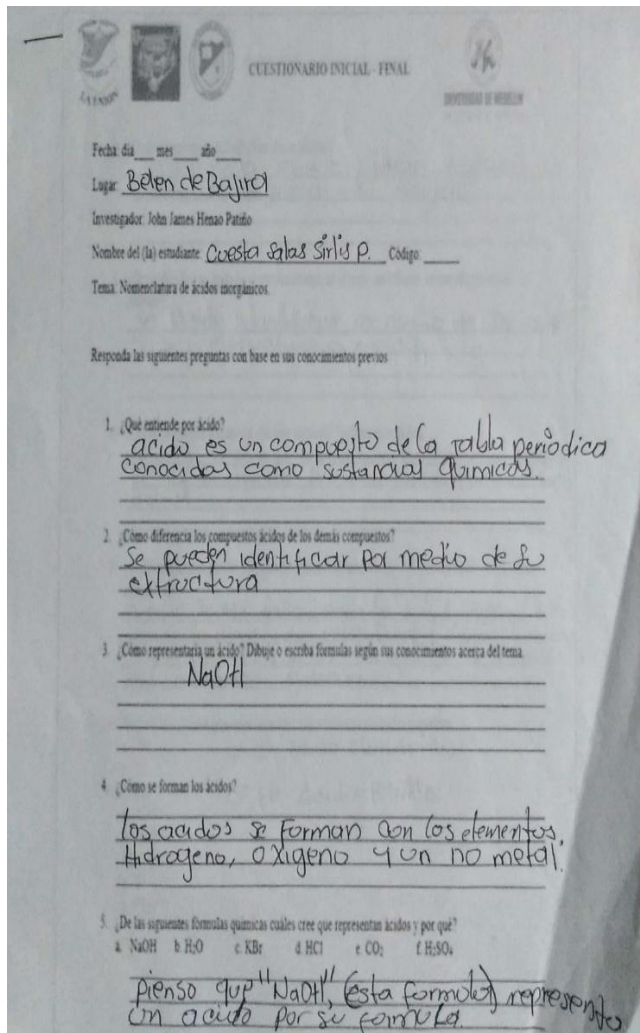 CUESTIONARIO INICIAL - FINAL
LA UNION
UNIVERSIDAD DE MEDELLIN
Fecha: día____ mes____ año____
Lugar: Belen de Bajirá
Investigador: John James Henao Patiño
Nombre del (la) estudiante: Cuesta Salas Sirlis P. Código:
Tema: Nomenclatura de ácidos inorgánicos.
Responda las siguientes preguntas con base en sus conocimientos previos
1. ¿Qué entiende por ácido?
acido es un compuesto de la Tabla periodica
conocidas como sustancias Quimicas.
2. ¿Cómo diferencia los compuestos ácidos de los demás compuestos?
Se pueden identificar por medio de su
extructura
3. ¿Cómo representaría un ácido? Dibuje o escriba formulas según sus conocimientos acerca del tema.
NaOH
4. ¿Cómo se forman los ácidos?
los acidos se forman con los elementos,
Hidrogeno, oxigeno y un no metal.
5. ¿De las siguientes fórmulas químicas cuáles cree que representan ácidos y por qué?
a. NaOH b. H₂O c. KBr d. HCl e. CO₂ f. H₂SO₄
pienso que "NaOH", (esta formula) representa
un acido por su formula